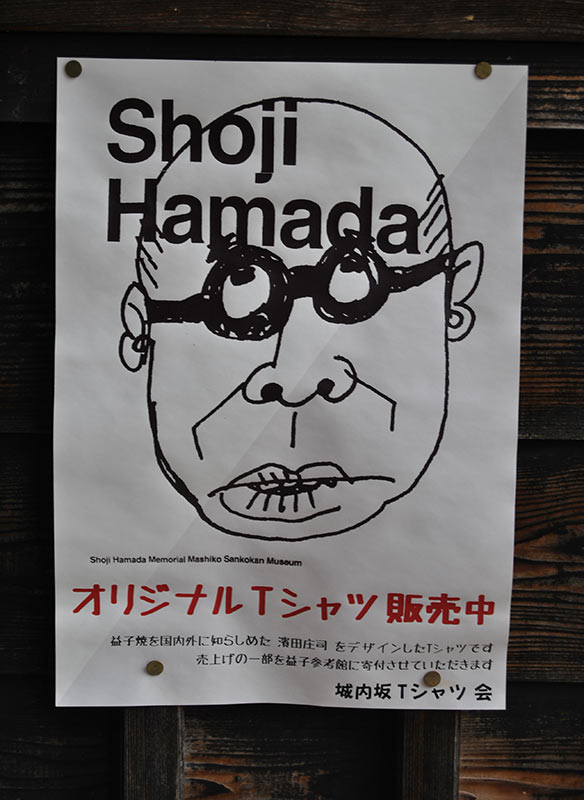 Shoji
Hamada
Shoji Hamada Memorial Mashiko Sankokan Museum
オリジナルTシャツ 販売中
益子焼を国内外に知らしめた 濱田庄司 をデザインしたTシャツです
売上げの一部を益子参考館に寄付させていただきます
城内坂 Tシャツ 会